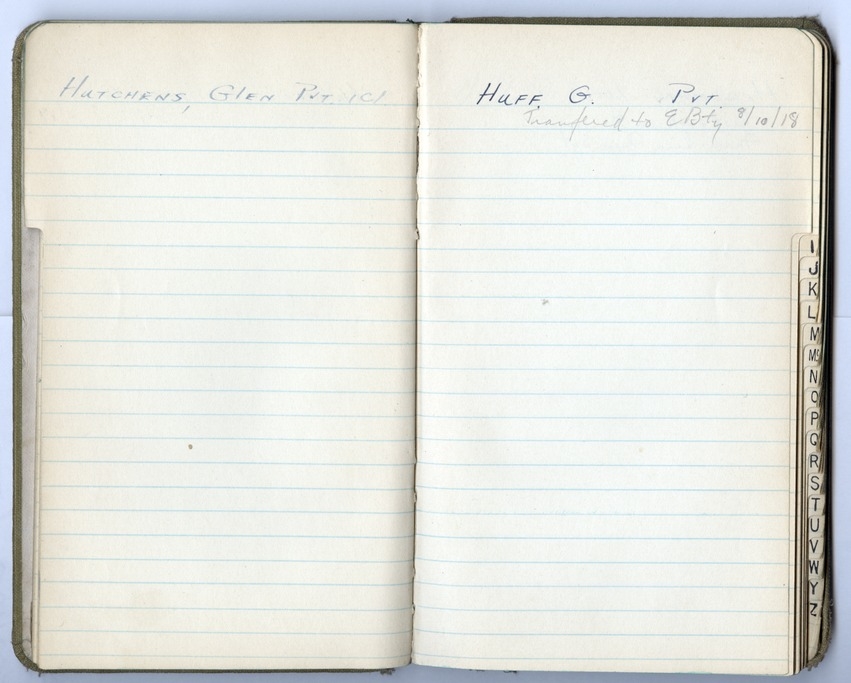 Hutchens, Glen Pvt. 1Cl
Huff, G. Pvt.
Tranfered to E Bty 8/10/18
I
J
K
L
M
Mc
N
O
P
Q
R
S
T
U
V
W
Y
Z